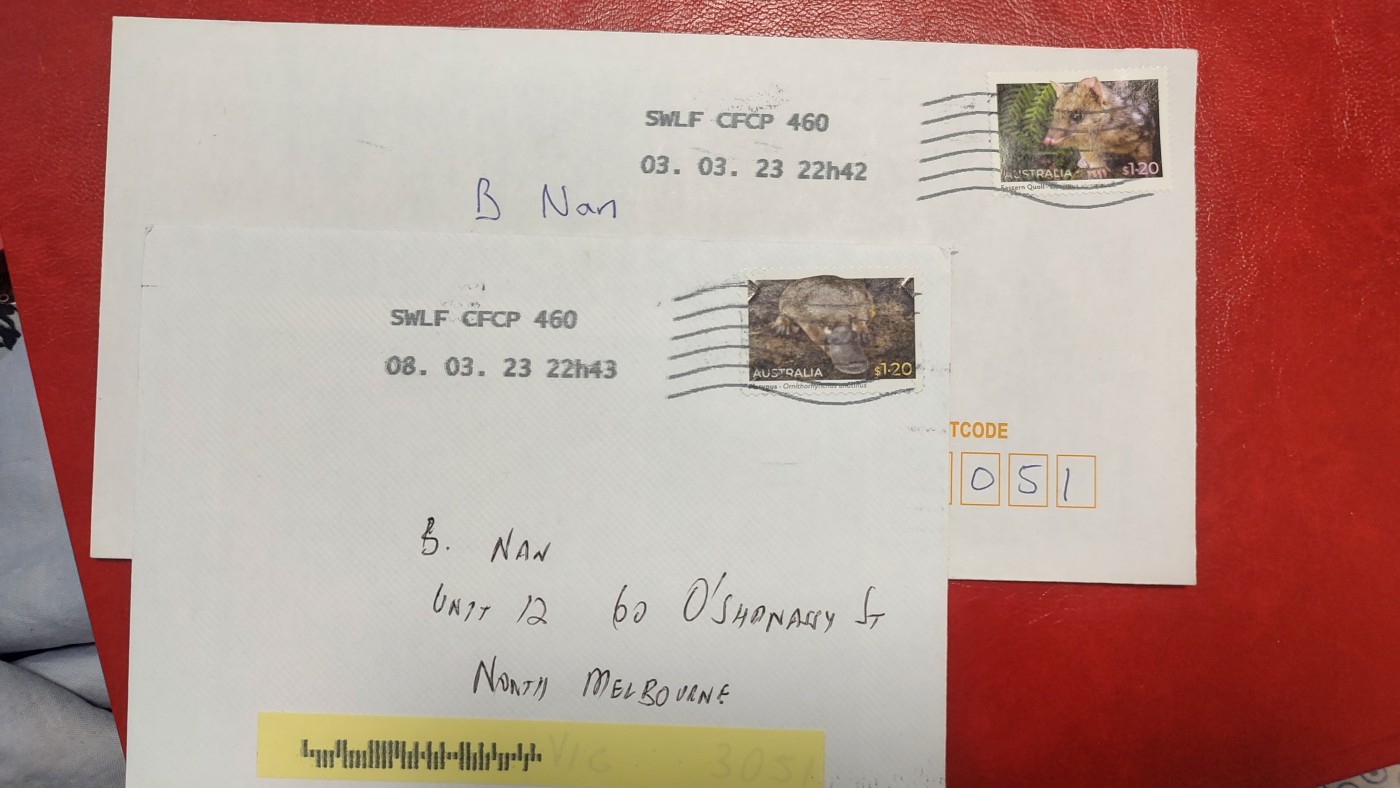 SWLF CFCP 460
03. 03. 23 22h42
AUSTRALIA $1.20
Eastern Quoll
B Nan
SWLF CFCP 460
08. 03. 23 22h43
AUSTRALIA $1.20
Platypus - Ornithorhynchus anatinus
TCODE
051
B. NAN
UNIT 12 60 O'SHANASSY ST
NORTH MELBOURNE
VIC 3051